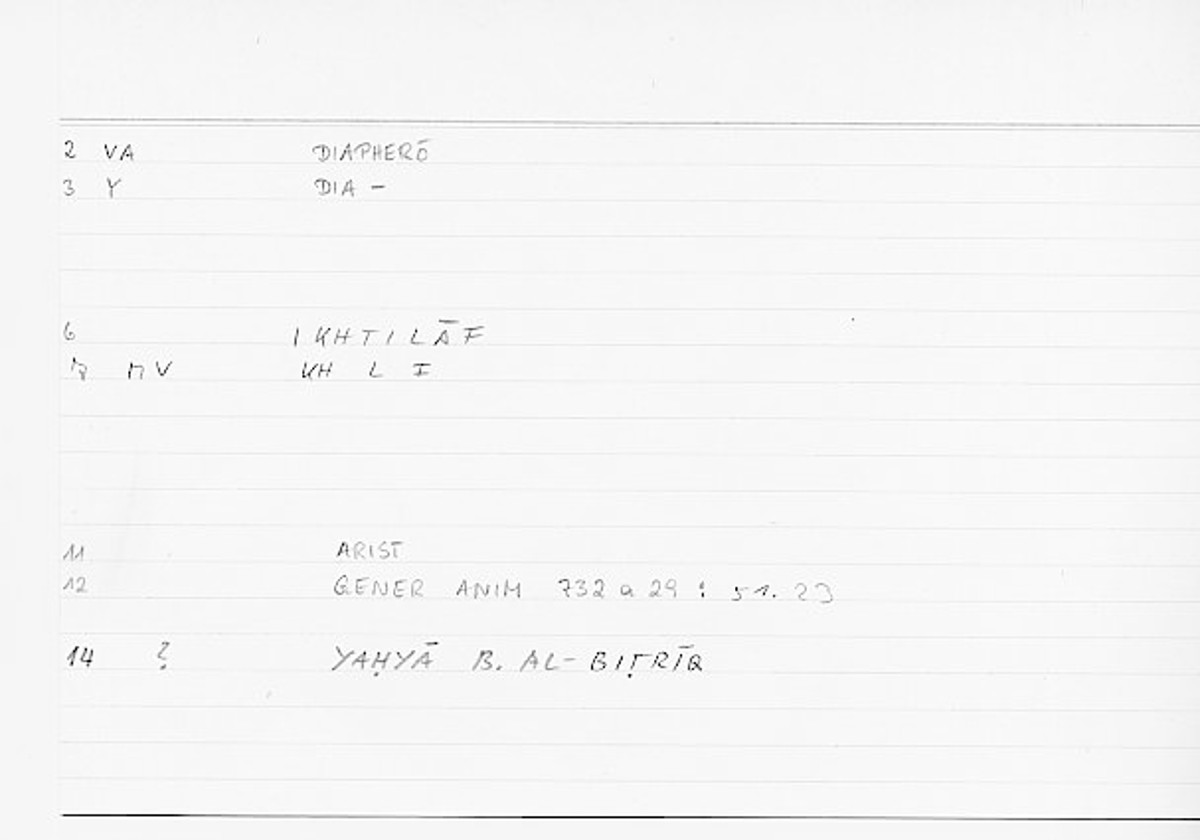 2 VA DIAPHERŌ
3 Y DIA -
6 IKHTILĀF
MV KH L
11 ARIST
12 GENER ANIM 732 a 29 : 51. 23
14 ? YAḤYĀ B. AL-BIṬRĪQ